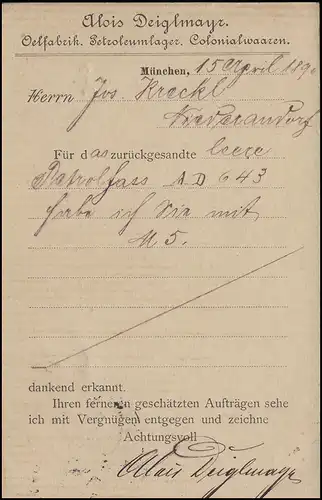 Alois Deiglmayr.
Oelfabrik. Petroleumlager. Colonialwaaren.
München, 15 April 189
Herrn Jos Kreckl
Niederandorf
Für das zurückgesandte leere
Petrolfass AD 643
habe ich Sie mit
M 5.
dankend erkannt.
Ihren ferneren geschätzten Aufträgen sehe
ich mit Vergnügen entgegen und zeichne
Achtungsvoll
Alois Deiglmayr